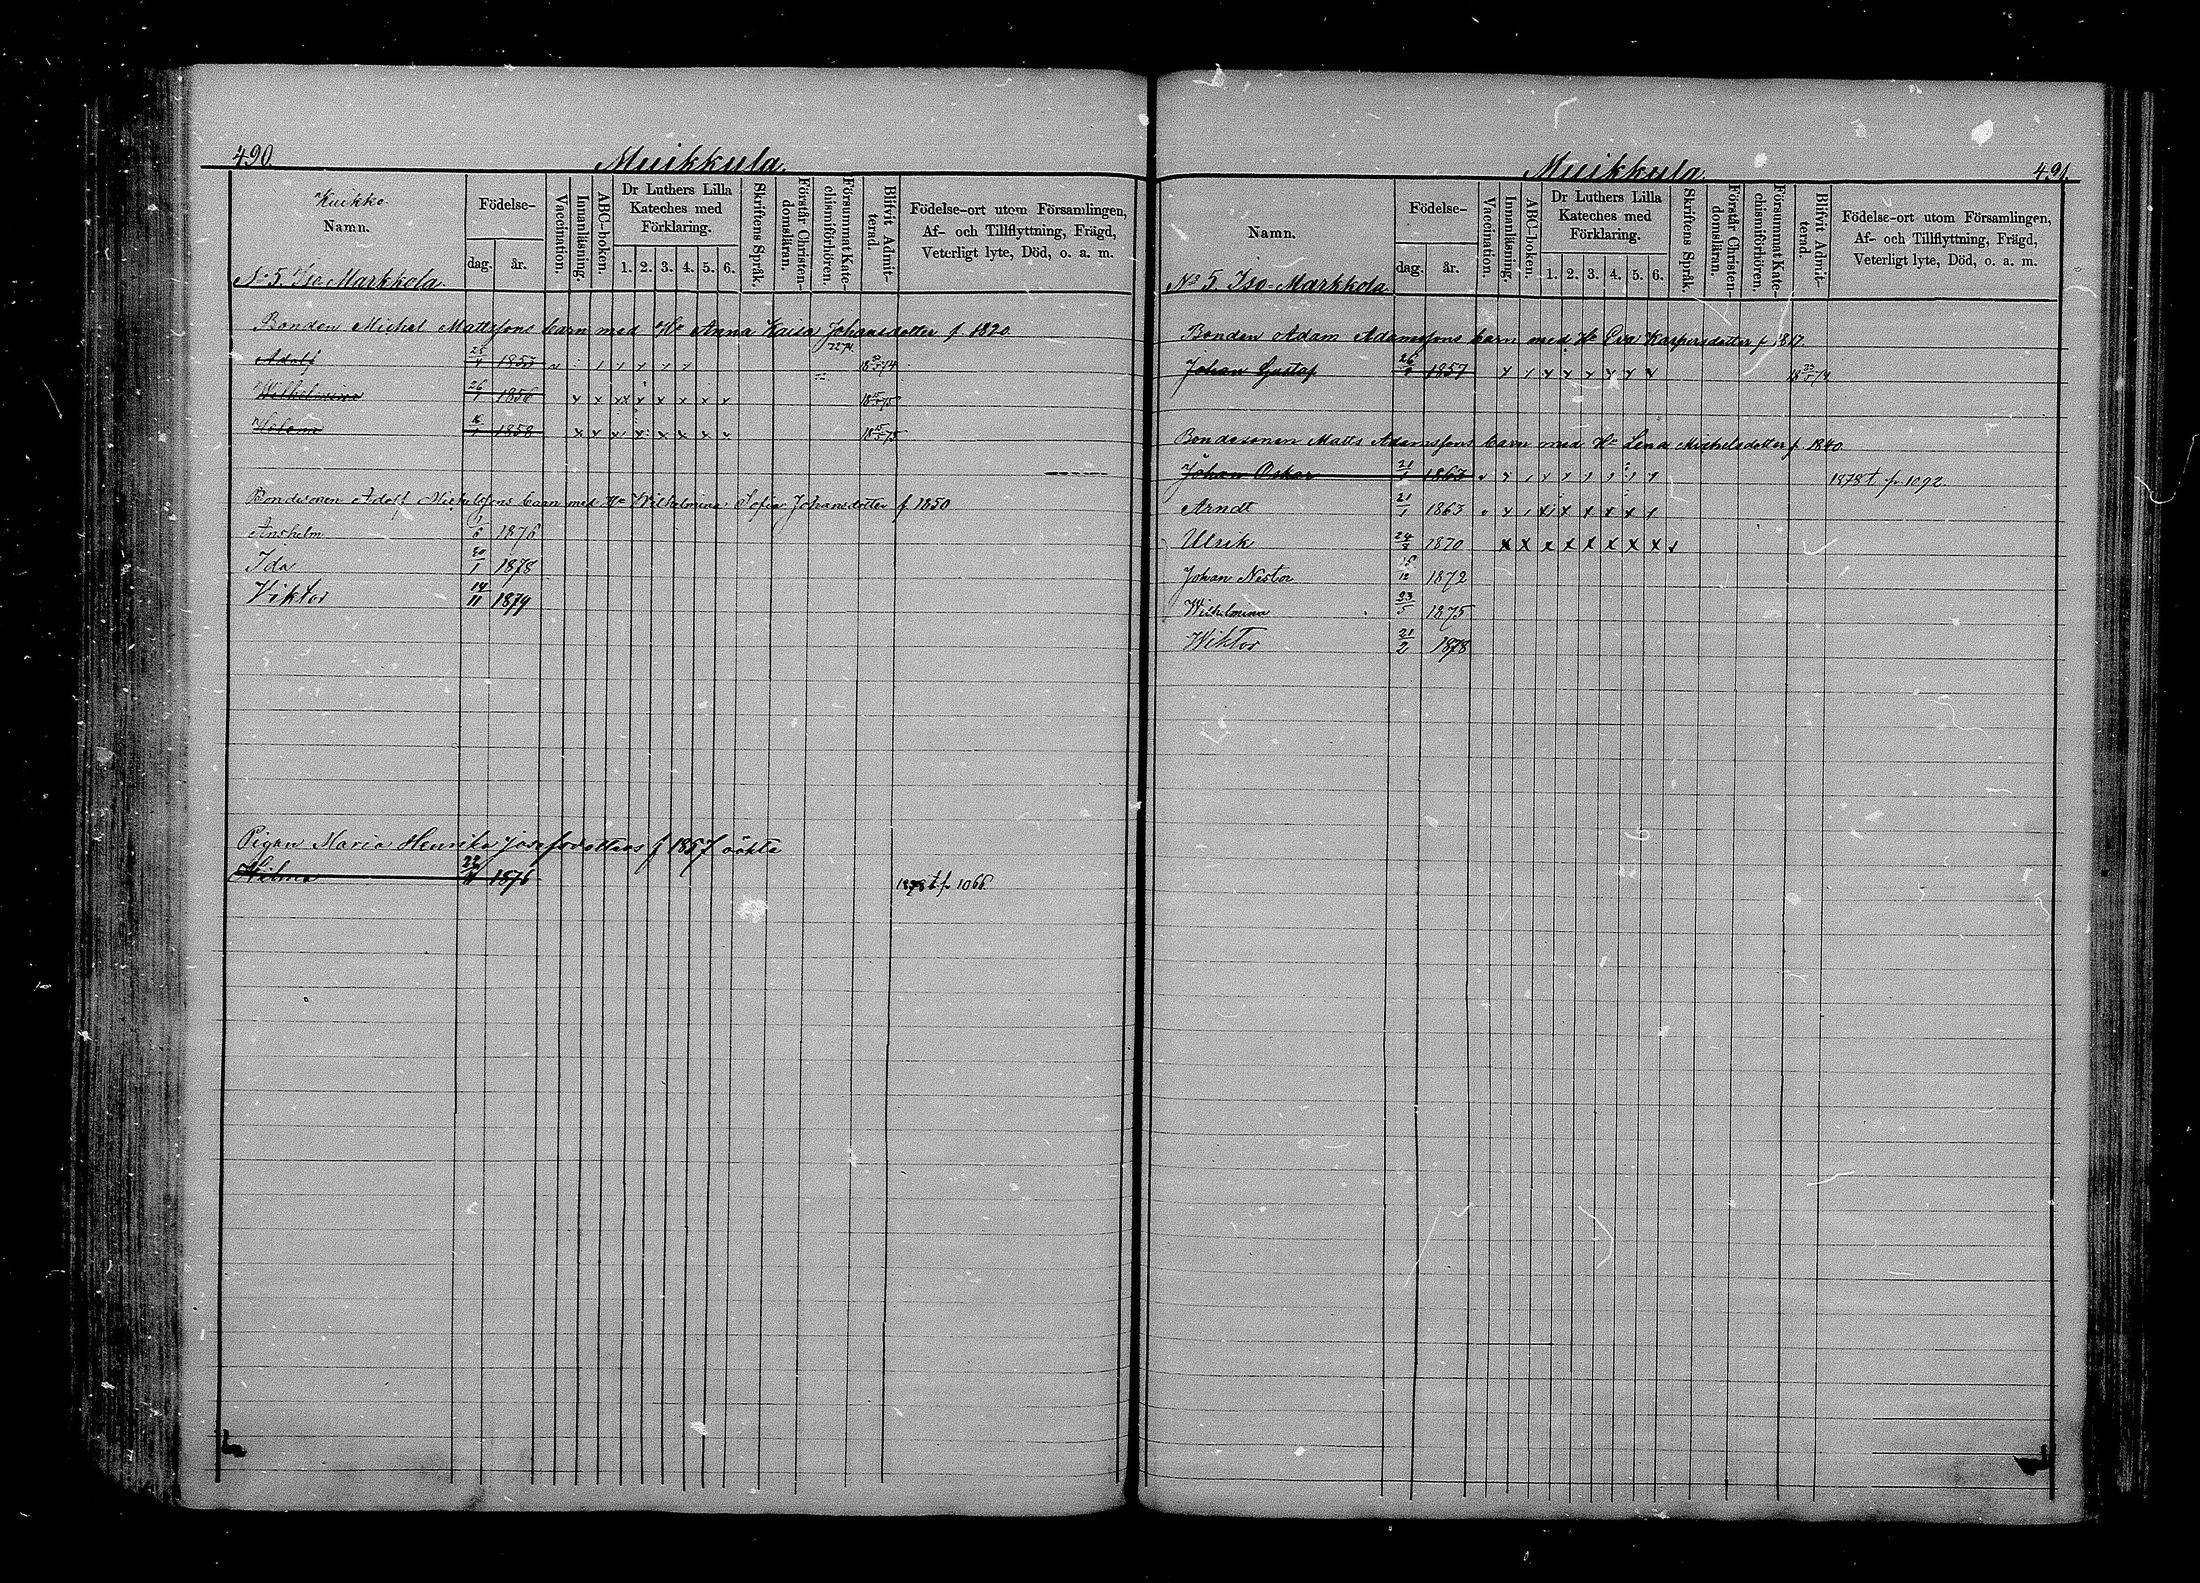 490.
Muikkula.
Kuikko
Namn.
Födelse-
dag. år.
Vaccination.
Innanläsning.
ABC-boken.
Dr Luthers Lilla Kateches med Förklaring.
1. 2. 3. 4. 5. 6.
Skriftens Språk.
Förstår Christendomsläran.
Försummat Katechismiförhören.
Blifvit Admitterad.
Födelse-ort utom Församlingen,
Af- och Tillflyttning, Frägd,
Veterligt lyte, Död, o. a. m.
No 5. Iso Markkola.
Bonden Michel Mattssons barn med Hu Anna Kaisa Johansdotter f. 1820
Adolf 25/4 1853
Wilhelmina 26/1 1856 x x xx x x x x x
Helena 1858 x x x x x x x x
Bondesonen Adolf Michelssons barn med Hu Wilhelmina Sofia Johansdotter f 1850
Anshelm 1/6 1876
Ida 30/1 1878
Viktor 14/11 1879
Pigan Maria Henrika Josefsdotters f 1857 oäkta
Hilma 22/11 1876 1878 t. p 1066
Muikkula.
491.
Namn.
Födelse-
dag. år.
Vaccination.
Innanläsning.
ABC-boken.
Dr Luthers Lilla Kateches med Förklaring.
1. 2. 3. 4. 5. 6.
Skriftens Språk.
Förstår Christendomsläran.
Försummat Katechismiförhören.
Blifvit Admitterad.
Födelse-ort utom Församlingen,
Af- och Tillflyttning, Frägd,
Veterligt lyte, Död, o. a. m.
No 5. Iso-Markkola
Bonden Adam Adamssons barn med Hu Eva Kaspersdotter f. 1817.
Johan Gustaf 1857
Bondesonen Matts Adamssons barn med Hu Lena Michelsdotter f 1840.
Johan Oskar 21/1 1863 1878 t. p 1092.
Arndt 21/1 1863
Ulrik 1870 x x x x x x x x
Johan Nestor 1872
Wilhelmina 23/5 1875
Wiktor 21/2 1878